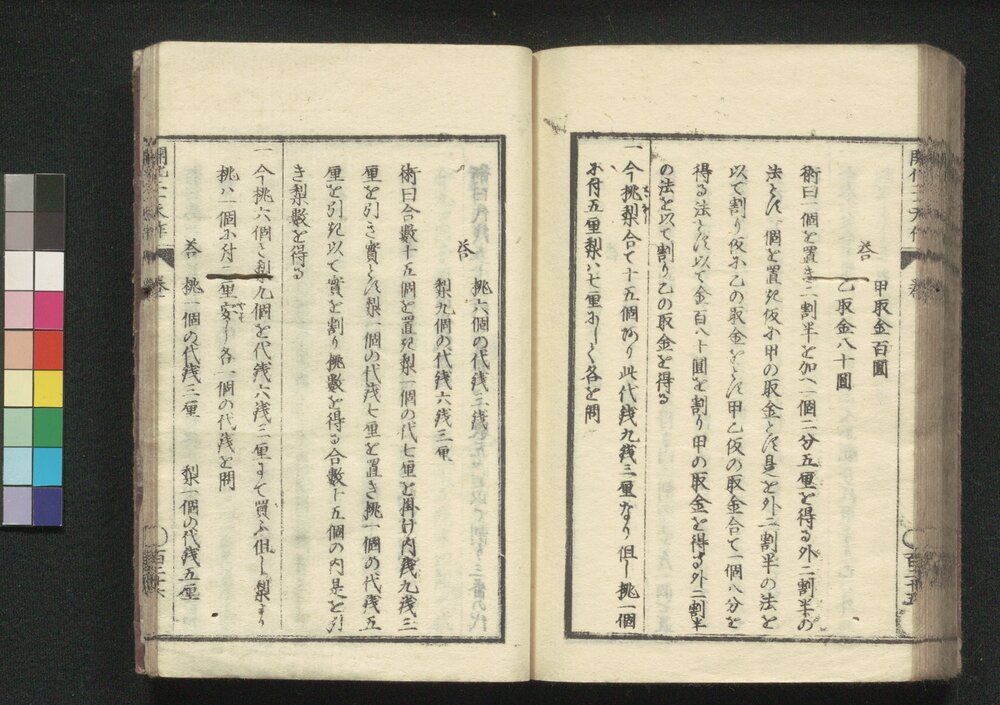 答
甲取金百圓
乙取金八十圓
術曰一個を置き二割半を加へ一個二分五厘を得る外二割半の
法とす一個を置き仮に甲の取金とす是を外二割半の法を
以て割り仮に乙の取金とす甲乙仮の取金合て一個八分を
得る法とす以て金百八十圓を割り甲の取金を得る外二割半
の法を以て割り乙の取金を得る
一今桃梨合て十五個あり此代銭九銭三厘なり但し桃一個
に付五厘梨ハ七厘にして各を問
百二十五
答
桃六個の代銭三銭
梨九個の代銭六銭三厘
術曰合數十五個を置き梨一個の代七厘を掛け内銭九銭三
厘を引き實とす梨一個の代銭七厘を置き桃一個の代銭五
厘を引き以て實を割り桃數を得る合數十五個の内是を引
き梨數を得る
一今桃六個と梨九個を代銭六銭三厘にて買ふ但し梨より
桃ハ一個に付二厘安し各一個の代銭を問
答 桃一個の代銭三厘 梨一個の代銭五厘